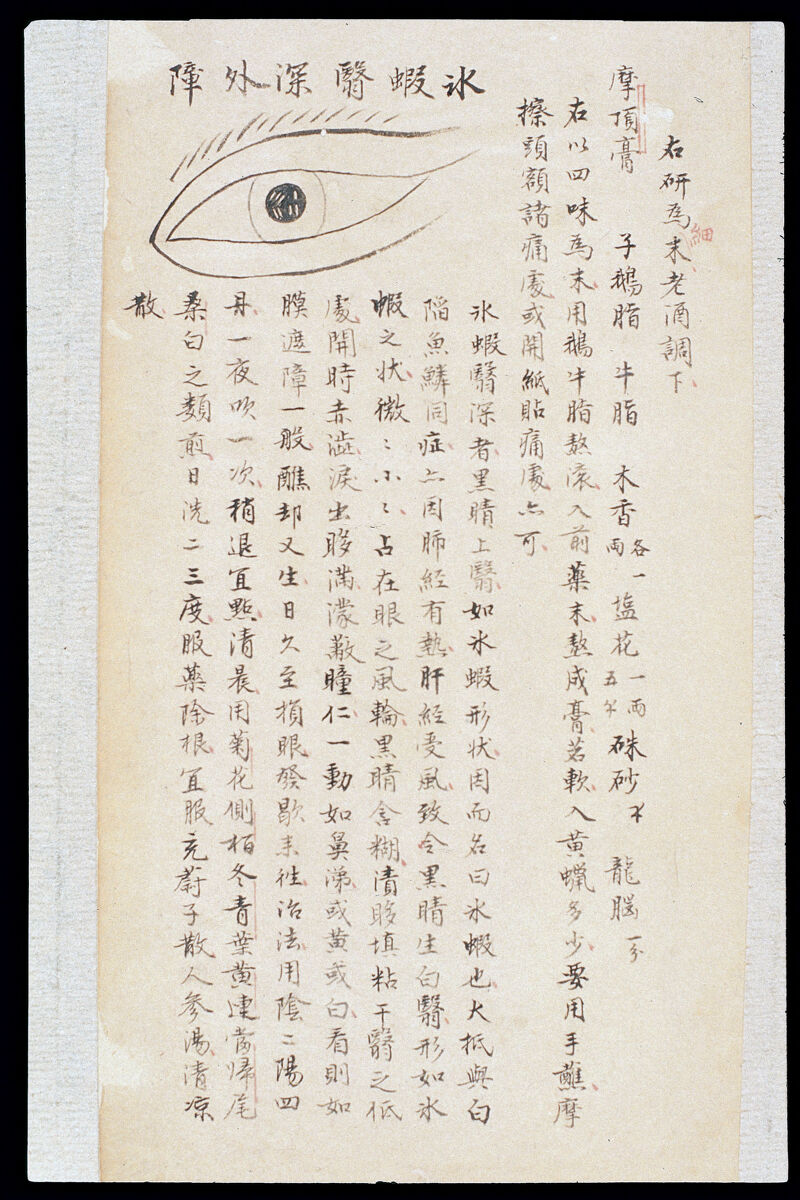 右研為細末老酒調下
摩頂膏 子鵝脂 牛脂 木香各一兩 塩花一兩五分 硃砂 龍腦一分
右以四味為末用鵝牛脂熬滚入前藥末熬成膏若軟入黃蠟多少要用手蘸摩
擦頭額諸痛處或開紙貼痛處亦可
氷蝦翳深外障
氷蝦翳深者黑睛上翳如氷蝦形状因而名曰氷蝦也大抵與白
陷魚鱗同症亦因肺經有熱肝經受風致令黑睛生白翳形如氷
蝦之状微〻小〻占在眼之風輪黑睛含糊漬眵填粘于翳之低
處開時赤澁淚出眵滿濛蔽瞳仁一動如鼻涕或黃或白看則如
膜遮障一般醮却又生日久至損眼發歇來徃治法用陰二陽四
丹一夜吹一次稍退宜點清晨用菊花側栢冬青葉黃連當歸尾
桑白之類煎日洗二三度服藥除根宜服充蔚子散人參湯清凉
散